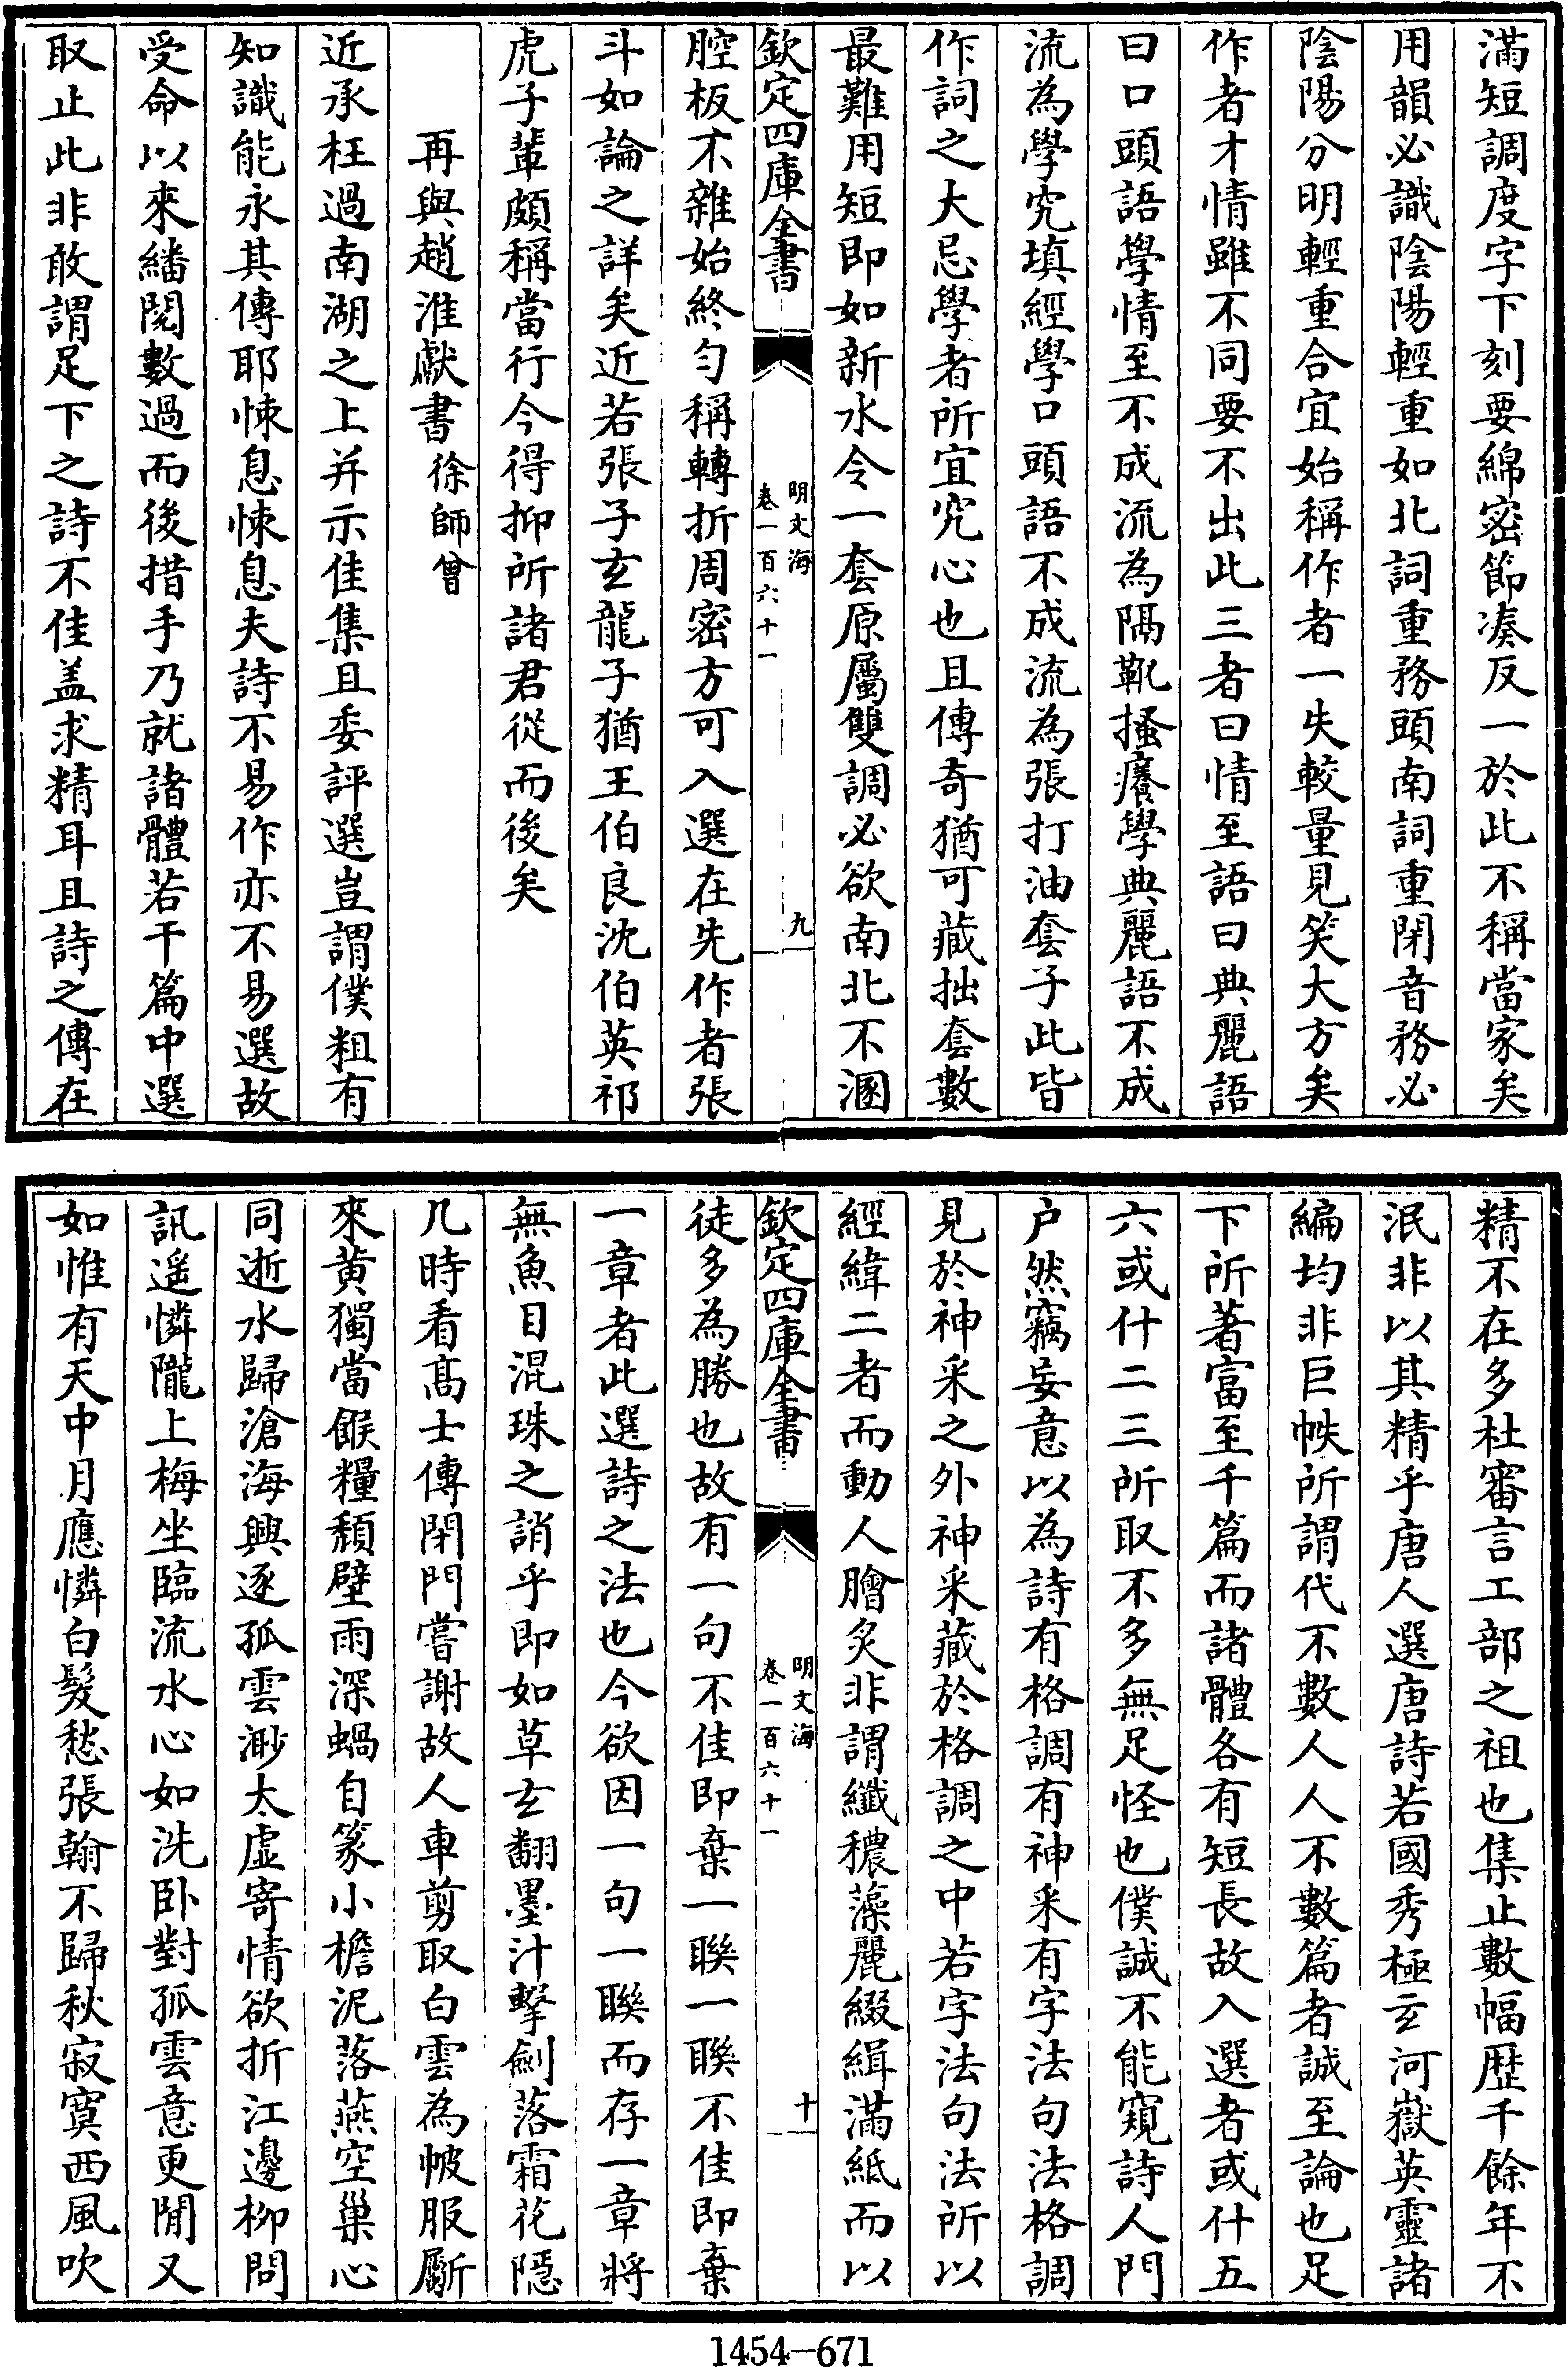 滿短調度字下刻要綿密節湊反一於此不稱當家矣
用韻必識陰陽輕重如北詞重務頭南詞重閉音務必
陰陽分明輕重合宜始稱作者一失較量見笑大方矣
作者才情雖不同要不出此三者曰情至語曰典麗語
曰口頭語學情至不成流為隔靴搔癢學典麗語不成
流為學究填經學口頭語不成流為張打油套子此皆
作詞之大忌學者所宜究心也且傳奇猶可藏拙套數
最難用短即如新水令一套原屬雙調必欲南北不溷
欽定四庫全書
明文海
卷一百六十一
九
腔板不雜始終勻稱轉折周密方可入選在先作者張
斗如論之詳矣近若張子玄龍子猶王伯良沈伯英祁
虎子輩頗稱當行今得抑所諸君從而後矣
再與趙淮獻書徐師曾
近承枉過南湖之上并示佳集且委評選豈謂僕粗有
知識能永其傳耶悚息悚息夫詩不易作亦不易選故
受命以來繙閱數過而後措手乃就諸體若干篇中選
取止此非敢謂足下之詩不佳盖求精耳且詩之傳在
精不在多杜審言工部之祖也集止數幅歷千餘年不
泯非以其精乎唐人選唐詩若國秀極玄河嶽英靈諸
編均非巨帙所謂代不數人人不數篇者誠至論也足
下所著富至千篇而諸體各有短長故入選者或什五
六或什二三所取不多無足怪也僕誠不能窺詩人門
户然竊妄意以為詩有格調有神采有字法句法格調
見於神采之外神采藏於格調之中若字法句法所以
經緯二者而動人膾炙非謂纖穠藻麗綴緝滿紙而以
欽定四庫全書
明文海
卷一百六十一
十
徒多為勝也故有一句不佳即棄一聯一聯不佳即棄
一章者此選詩之法也今欲因一句一聯而存一章將
無魚目混珠之誚乎即如草玄翻墨汁擊劍落霜花隱
几時看髙士傳閉門嘗謝故人車剪取白雲為帔服斸
來黄獨當餱糧頹壁雨深蝸自篆小檐泥落燕空巢心
同逝水歸滄海興逐孤雲渺太虛寄情欲折江邊柳問
訊遥憐隴上梅坐臨流水心如洗卧對孤雲意更閒又
如惟有天中月應憐白髮愁張翰不歸秋寂寞西風吹
1454-671